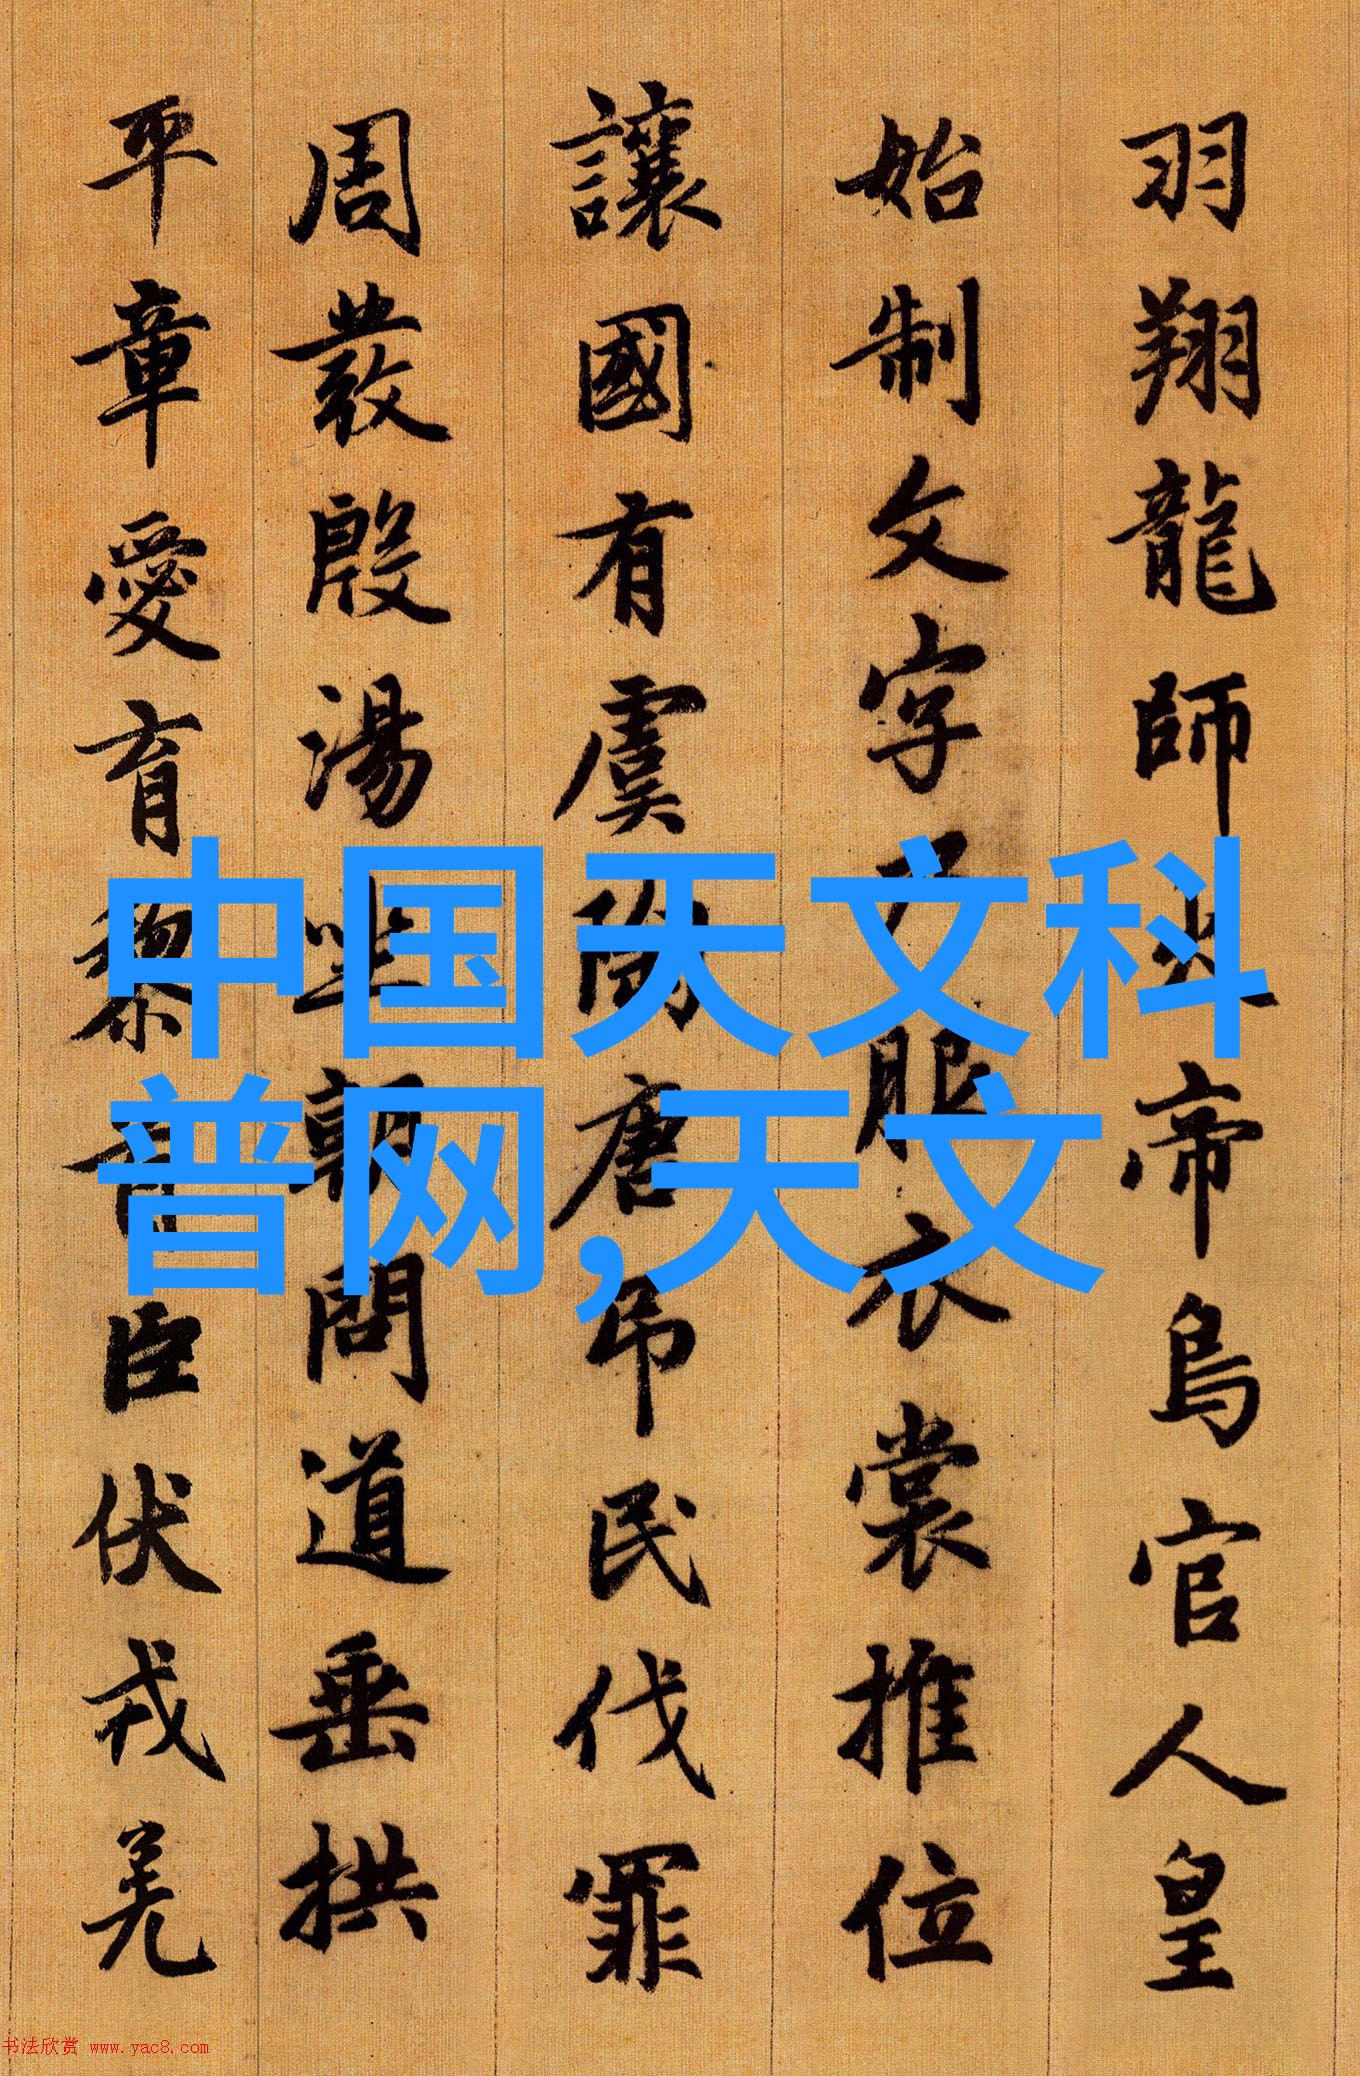 羽翔龍師火帝鳥官人皇
始制文字乃服衣裳推位
讓國有虞陶唐弔民伐罪
周發殷湯坐朝問道垂拱
平章愛育黎首臣伏戎羌
中国天文科
普网,天文
书法欣赏 www.yac8.com